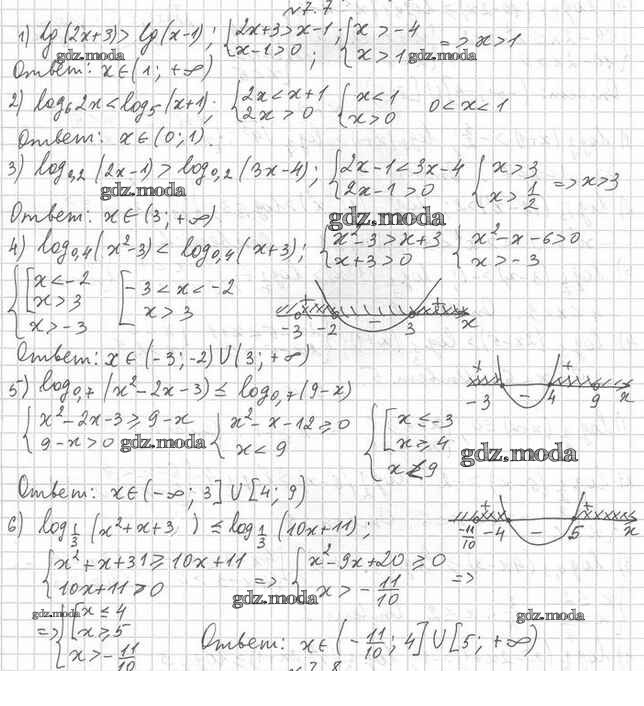 №7.7
1) lg(2x+3)>lg(x-1); {2x+3>x-1; x-1>0; {x>-4 x>1 => x>1
gdz.moda gdz.moda
Ответ: x∈(1; +∞)
2) log₆2x<log₅(x+1); {2x<x+1 2x>0 {x<1 x>0 0<x<1
Ответ: x∈(0;1).
3) log₀,₂(2x-1)>log₀,₂(3x-4); {2x-1<3x-4 2x-1>0 {x>3 x>1/2 => x>3
gdz.moda
Ответ: x∈(3; +∞)
gdz.moda
4) log₀,₄(x²-3)<log₀,₄(x+3); {x²-3>x+3 x+3>0 {x²-x-6>0 x>-3
{[x<-2 x>3 x>-3 [-3<x<-2 x>3
+ - + -3 -2 3 x
Ответ: x∈(-3;-2)∪(3; +∞)
5) log₀,₇(x²-2x-3)≤log₀,₇(9-x)
+ - + -3 4 9 x
{x²-2x-3≥9-x 9-x>0 {x²-x-12≥0 x<9 {[x≤-3 x≥4 x<9
gdz.moda gdz.moda
Ответ: x∈(-∞; 3]∪[4; 9)
6) log₁/₃(x²+x+3 )≤log₁/₃(10x+11);
+ - + -11/10 -4 5 x
{x²+x+31≥10x+11 10x+11>0 => {x²-9x+20≥0 x>-11/10 =>
gdz.moda
gdz.moda gdz.moda
=> {[x≤4 x≥5 x>-11/10
Ответ: x∈(-11/10; 4]∪[5; +∞)